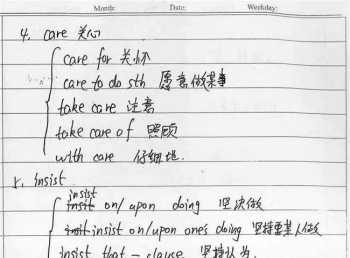 Month: Date: Weekday:
4. care 关心
care for 关怀
care to do sth 愿意做某事
take care 注意
take care of 照顾
with care 仔细地.
5. insist
insist
on/upon doing 坚决做
insist on/upon one's doing 坚持要某人做
insist that - clause 坚持认为.